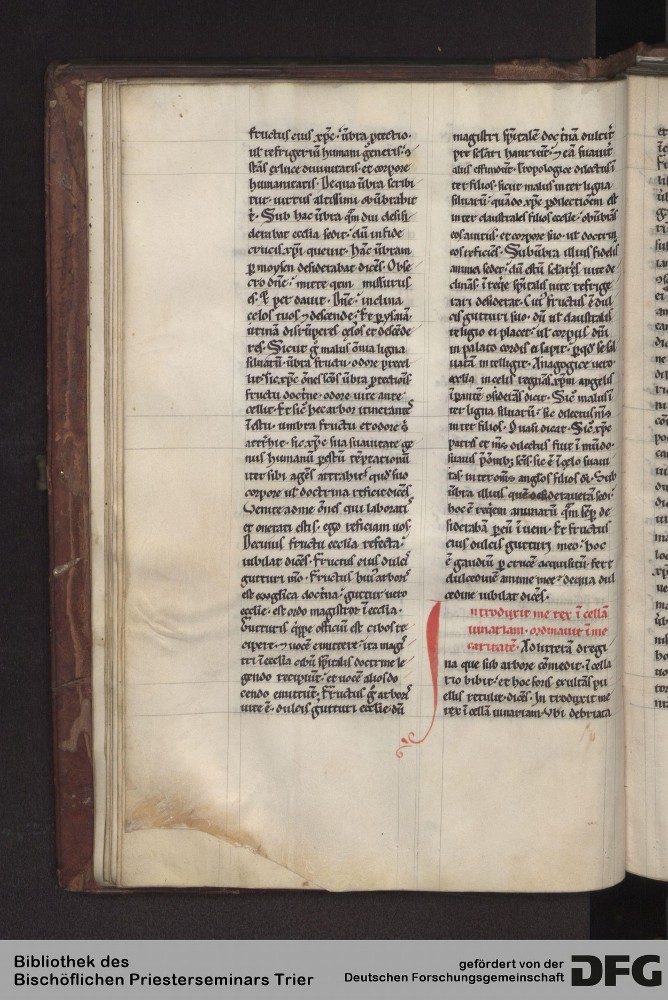 fructus eius xp̄c. ūbra ꝓtectio.
ul' refrigeriū humani generis.
stās ex luce diuinitatis. et corpore
humanitatis. De qua ūbra scribi
tur. uirtus altissimi obūbrabit
t'. Sub hac ūbra quā diu desi
derabat eccl̄ia sedit. dū in fide
crucis xp̄i quieuit. Hāc ūbram
ꝑ moysen desiderabat dicēs. Obse
cro dn̄e. mitte quem missurus
es. Et per dauit. Dn̄e. inclina
celos tuos & descende. Et ꝑ ysaiā.
utinā disrūperes celos et descēde
res. Sicut g̊ malus om̄ia ligna
siluarū. ūbra fructu odore precel
lit. sic xp̄c om̄es scōs ūbra ꝓtectiōis
fructu doctrine. odore uite ante
cellit. Et sic hec arbor itinerantes
ī estu. umbra fructu et odore
attrahit. sic xp̄c sua suauitate ge
nus humanū ꝑ estū tēptationū
iter sibi agēs attrahit. quod suo
corpore ul' doctrina reficit dicēs.
Uenite ad me om̄es qui laboratis
et onerati estis. ego reficiam uos.
De cuius fructu eccl̄ia refecta.
iubilat dicēs. Fructus eius dulcis
gutturi meo. Fructus huius arboris
est euuāgelica doctrina. guttur uero
eccl̄ie. est ordo magistrorum ī eccl̄ia.
Gutturis quippe officium est cibos re
cipere. & uocē emittere. ita magis
tri ī eccl̄ia cibū spiritalis doctrine le
gendo recipiunt. et uocē alios do
cendo emittunt. Fructus g̊ arboris
uite ē dulcis gutturi eccl̄ie. dū
magistri spiritalē doctrinā dulcit'
per se lati hauriunt. & eā suauit'
aliis effundunt. Tropologice dilectus ī
ter filios. sicut malus inter ligna
siluarū. quādo xp̄c ꝑ dilectionem est
inter claustrales filios eccl̄ie. obūbrās
eos a uitiis. et corpore suo. ul' doctrina
eos reficiēs. Sub ūbra illius fidelis
anima sedet. dū estū secularis uite de
clinās. ī requie spiritalis uite refrige
rari desiderat. Cui fructus ē dul
cis gutturi suo. dū ul' claustralis
religio ei placet. ul' corpus dn̄i
in palato cordis ei sapit. per quod se sal
uatā intelligit. Anagogice uero
eccl̄ia in celis regnās. xp̄m angelis
īperantē considerās dicit. Sic malus ī
ter ligna siluarū. sic dilectus meus
inter filios. Quasi dicat. Sic xp̄c
patris et meus dilectus fuit ī mūdo.
suauis p̄ om̄ibus scīs. sic ē ī celo suaui
tas. inter om̄s anglos filios dī. Sub
ūbra illius quē desideraueram sedi.
hoc ē requiem animarū quam semper de
siderabā per eum īueni. Et fructus
eius dulcis gutturi meo. hoc
ē gaudiū per crucē acquisitū. fert
dulcedinē anime mee. de qua dul
cedine iubilat dicēs.
Introduxit me rex ī cellā
uinariam. ordinauit ī me
caritatē. Adulterā o regi
na que sub arbore comedit. ī cella
rio bibit. et hoc foris exultās pu
ellis retulit. dicēs. Introduxit me
rex ī cellā uinariam. ubi debriata
Bibliothek des
Bischöflichen Priesterseminars Trier
gefördert von der
Deutschen Forschungsgemeinschaft
DFG